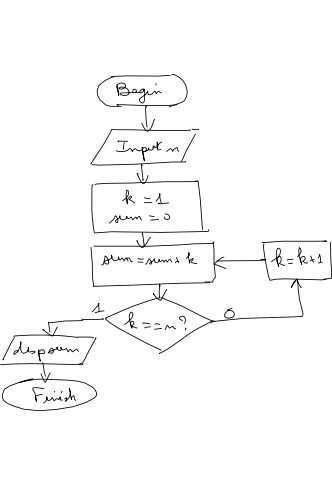 Begin
Input n
k = 1
sum = 0
sum = sum + k
k = k+1
k == n?
1
0
disp sum
Finish